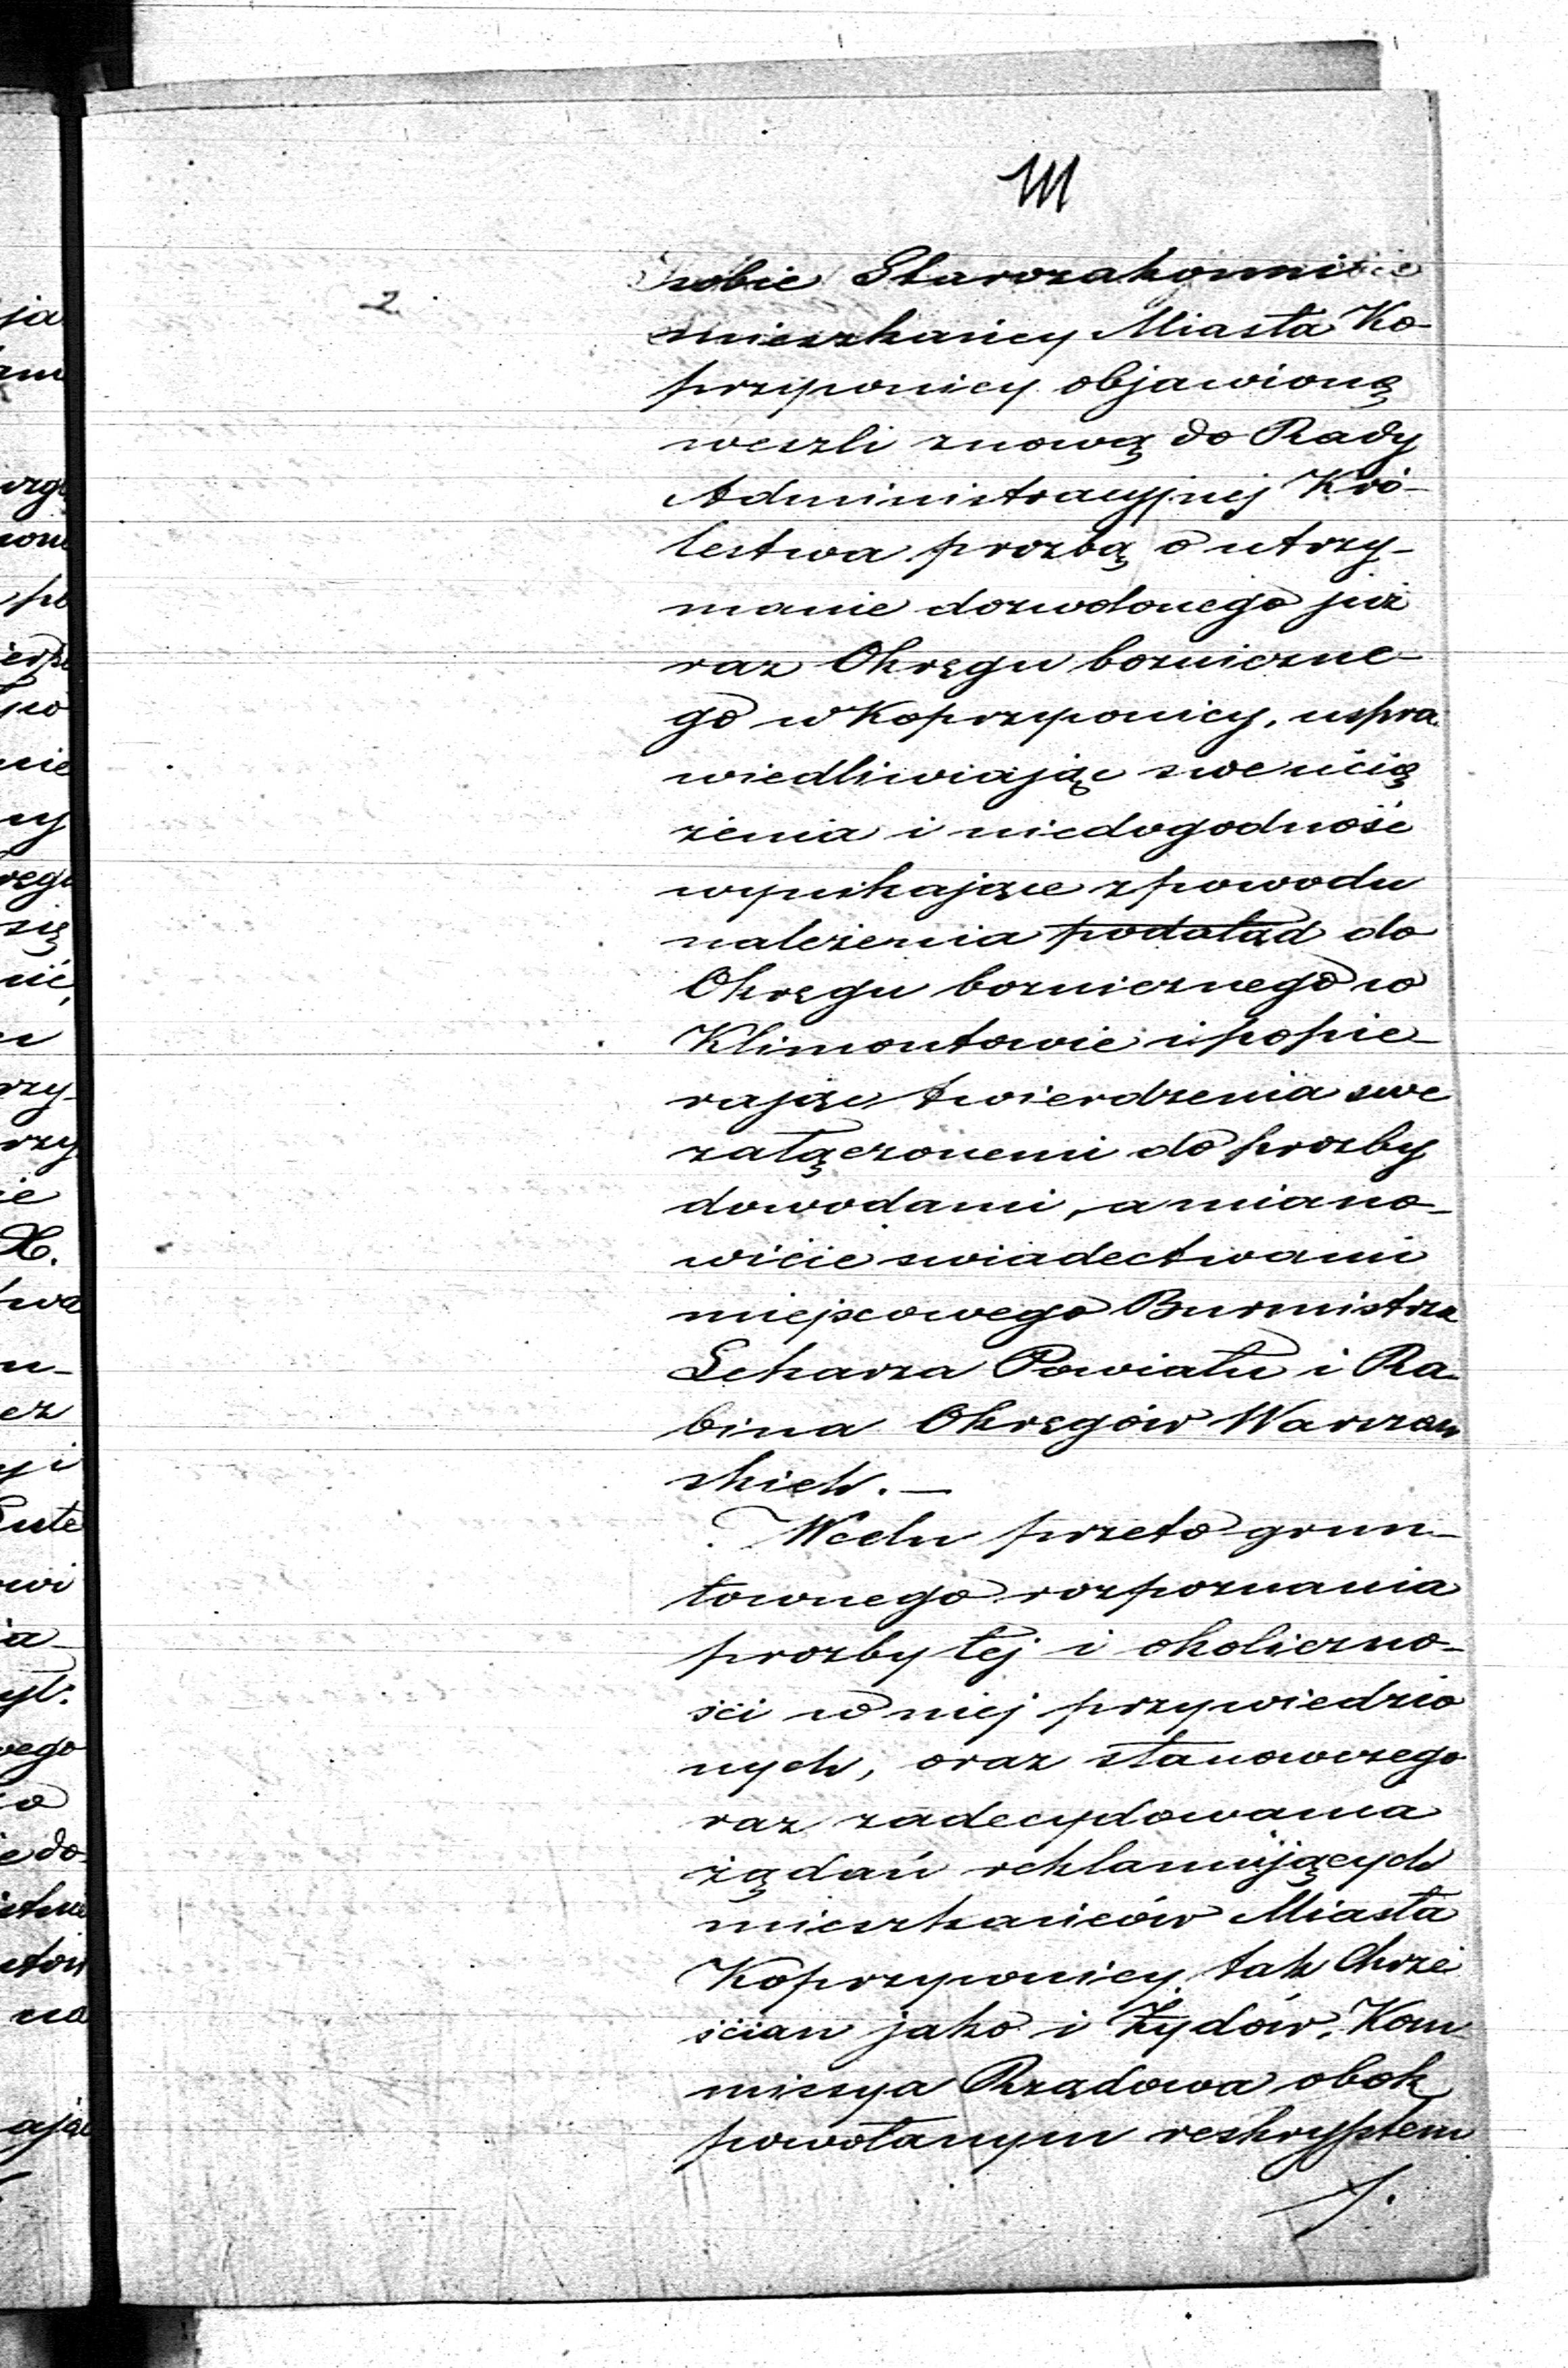 111
2.
sobie Starozakonni
mieszkańcy Miasta Ko-
przywnicy objawioną
weszli znową do Rady
Administracyjnej Kró-
lestwa prozbą o utrzy-
manie dozwolonego już
raz Okręgu bożniczne-
go w Koprzywnicy, uspra-
wiedliwiając swe ucią
żenia i niedogodność
wynikające z powodu
należenia podotąd do
Okręgu bożnicznego w
Klimontowie i popie-
rając twierdzenia swe
załączonemi do prozby
dowodami, a miano-
wicie swiadectwami
miejscowego Burmistrza
Lekarza Powiatu i Ra-
bina Okręgów Warszaw
skich. —
W celu przeto grun-
townego rozpoznania
prozby tej i okoliczno-
ści w niej przywiedzio
nych, oraz stanowczego
raz zadecydowania
żądań reklamujących
mieszkańców Miasta
Koprzywnicy, tak Chrze
ścian jako i Żydów, Kom
missya Rządowa obok
powołanym reskryptem